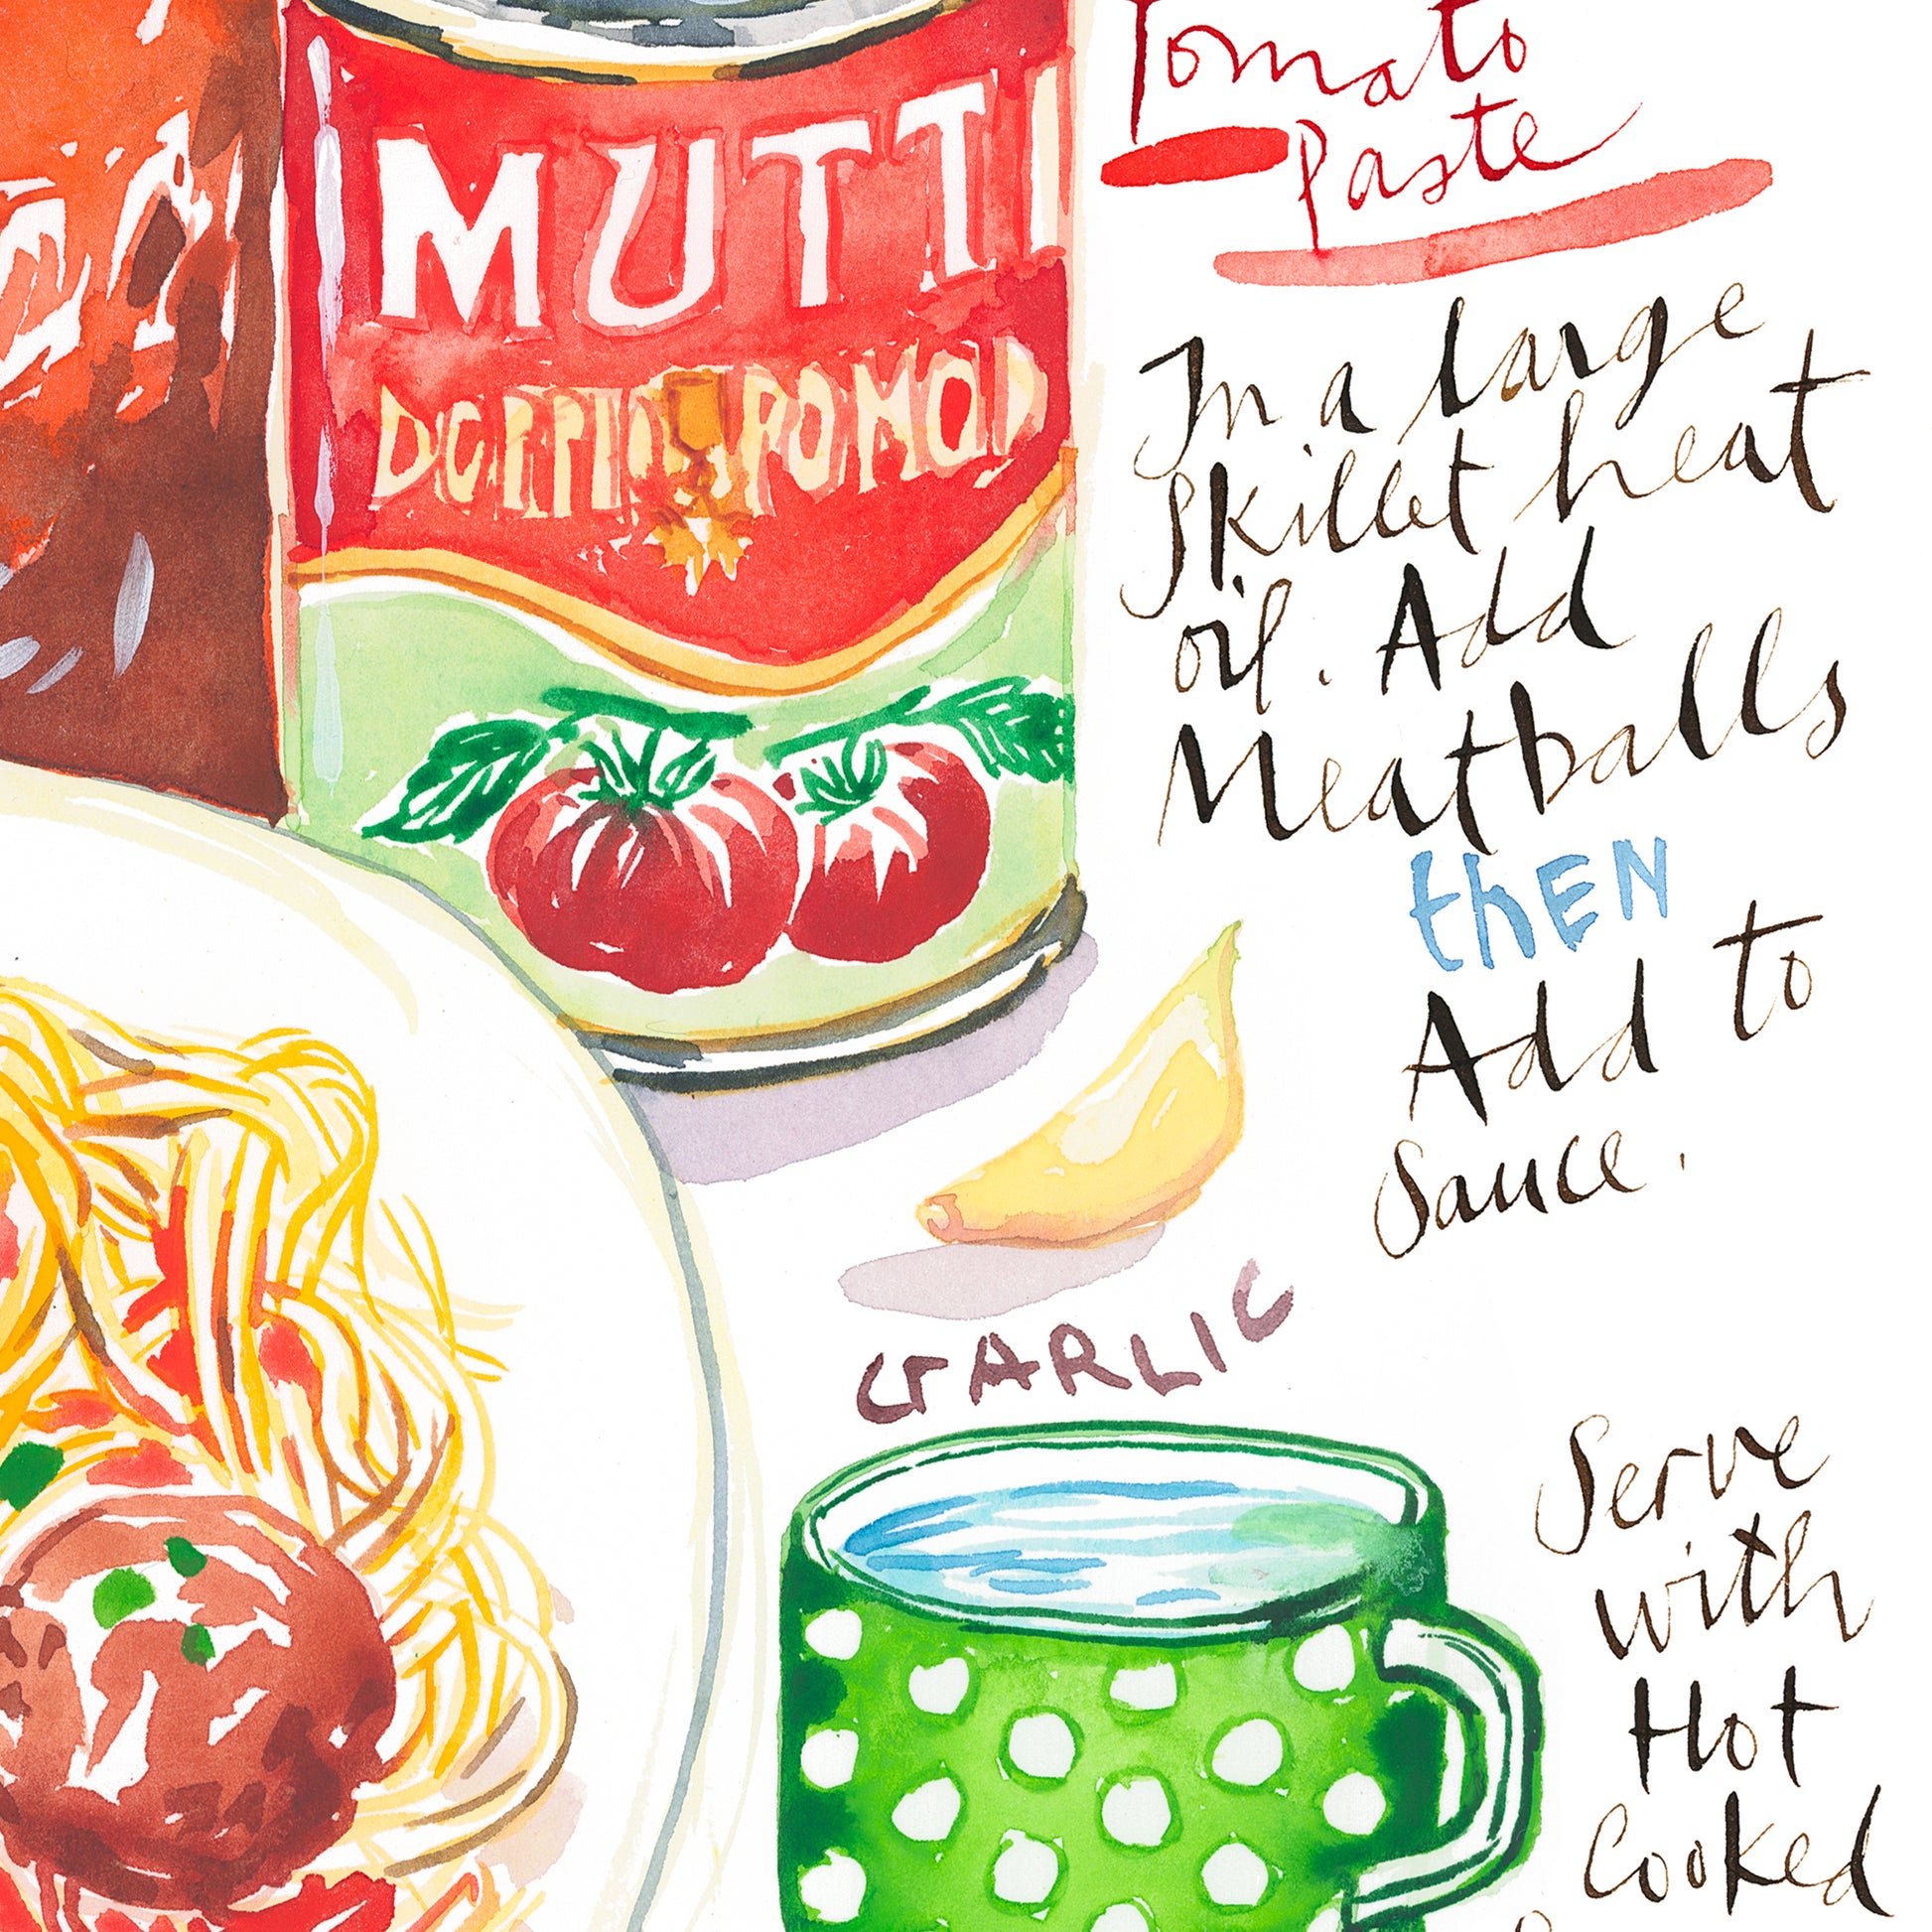 Tomato
Paste
MUTTI
DOPPIO POMOD
In a large
skillet heat
oil. Add
Meatballs
thEN
Add to
Sauce.
GARLIC
Serve
with
Hot
Cooked